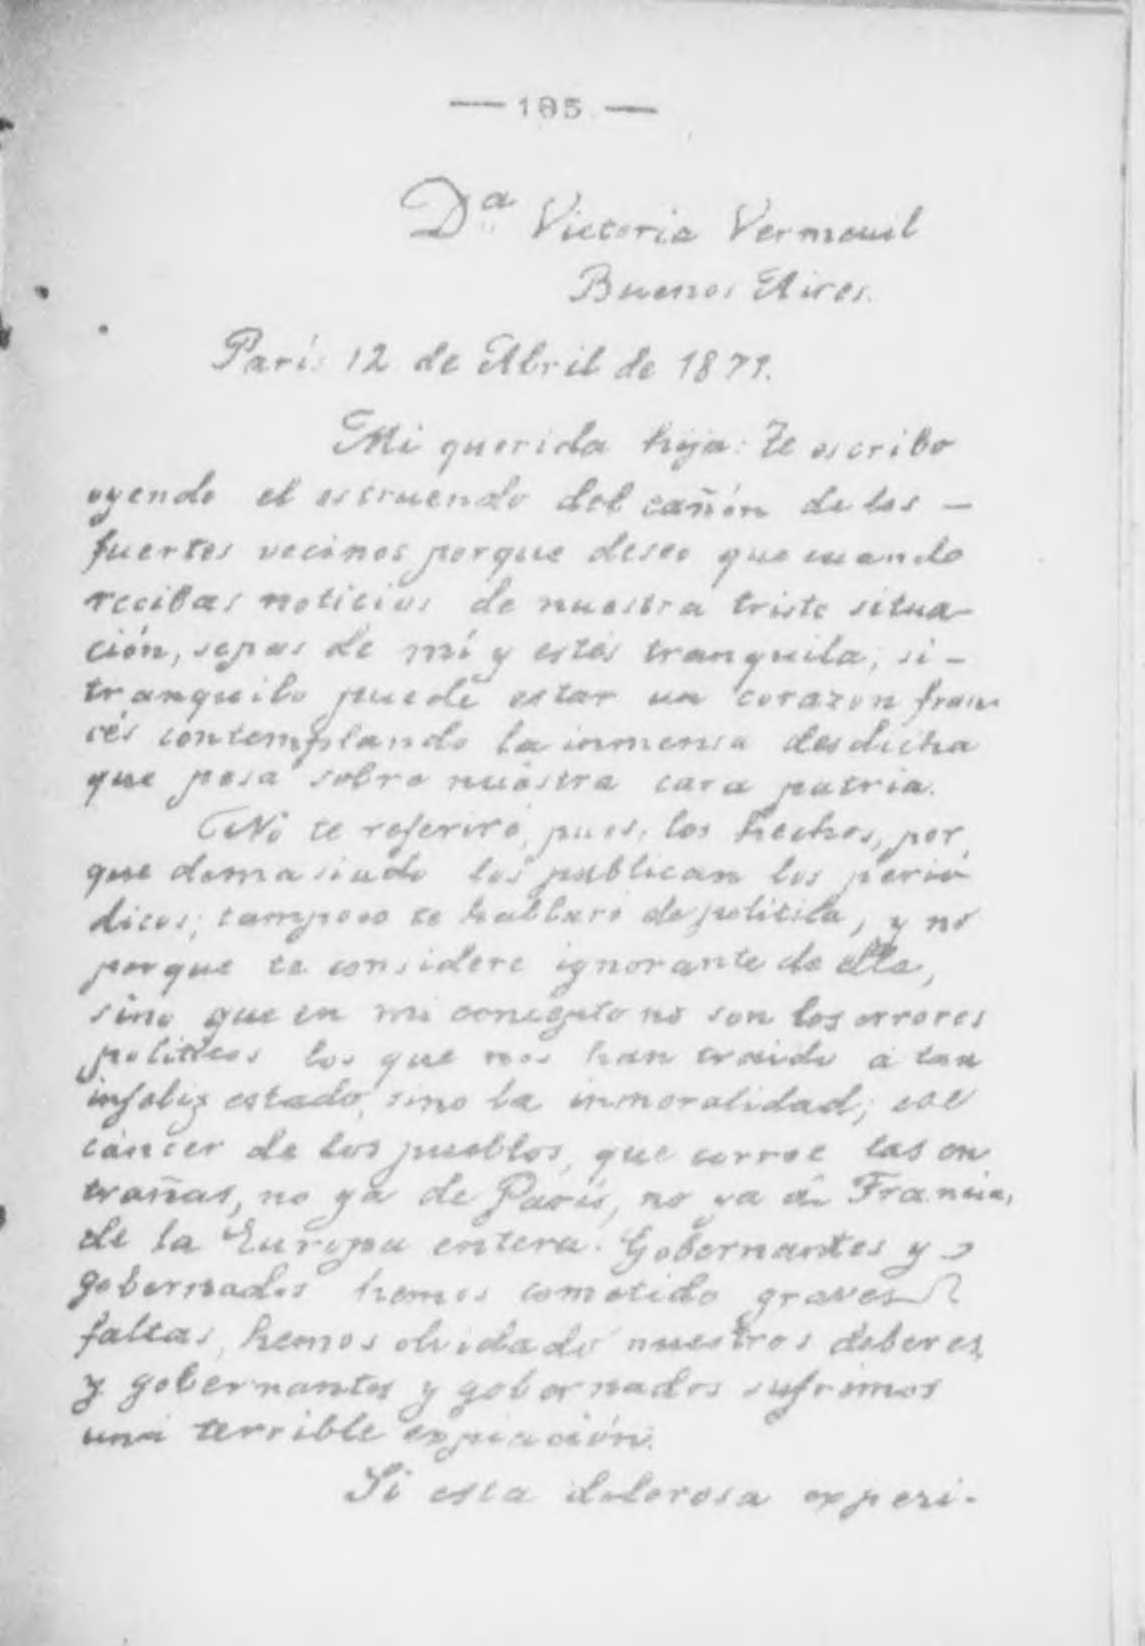 — 185 —
Dª Victoria Vermouil
Buenos Aires.
París 12 de Abril de 1871.
Mi querida hija: Te escribo
oyendo el estruendo del cañón de los –
fuertes vecinos porque deseo que cuando
recibas noticias de nuestra triste situa-
ción, sepas de mí y estés tranquila, si –
tranquilo puede estar un corazon fran-
cés contemplando la inmensa desdicha
que pesa sobre nuestra cara patria.
No te referiré, pues, los hechos, por
que demasiado los publican los perió
dicos; tampoco te hablaré de politica, y no
porque te considere ignorante de ella,
sino que en mi concepto no son los errores
politicos los que nos han traido á tan
infeliz estado, sino la inmoralidad; ese
cáncer de los pueblos, que corroe las en
trañas, no ya de París, no ya de Francia,
de la Europa entera. Gobernantes y
gobernados hemos cometido graves
faltas, hemos olvidado nuestros deberes,
y gobernantes y gobernados sufrimos
una terrible expiación.
Si esta dolorosa experi-